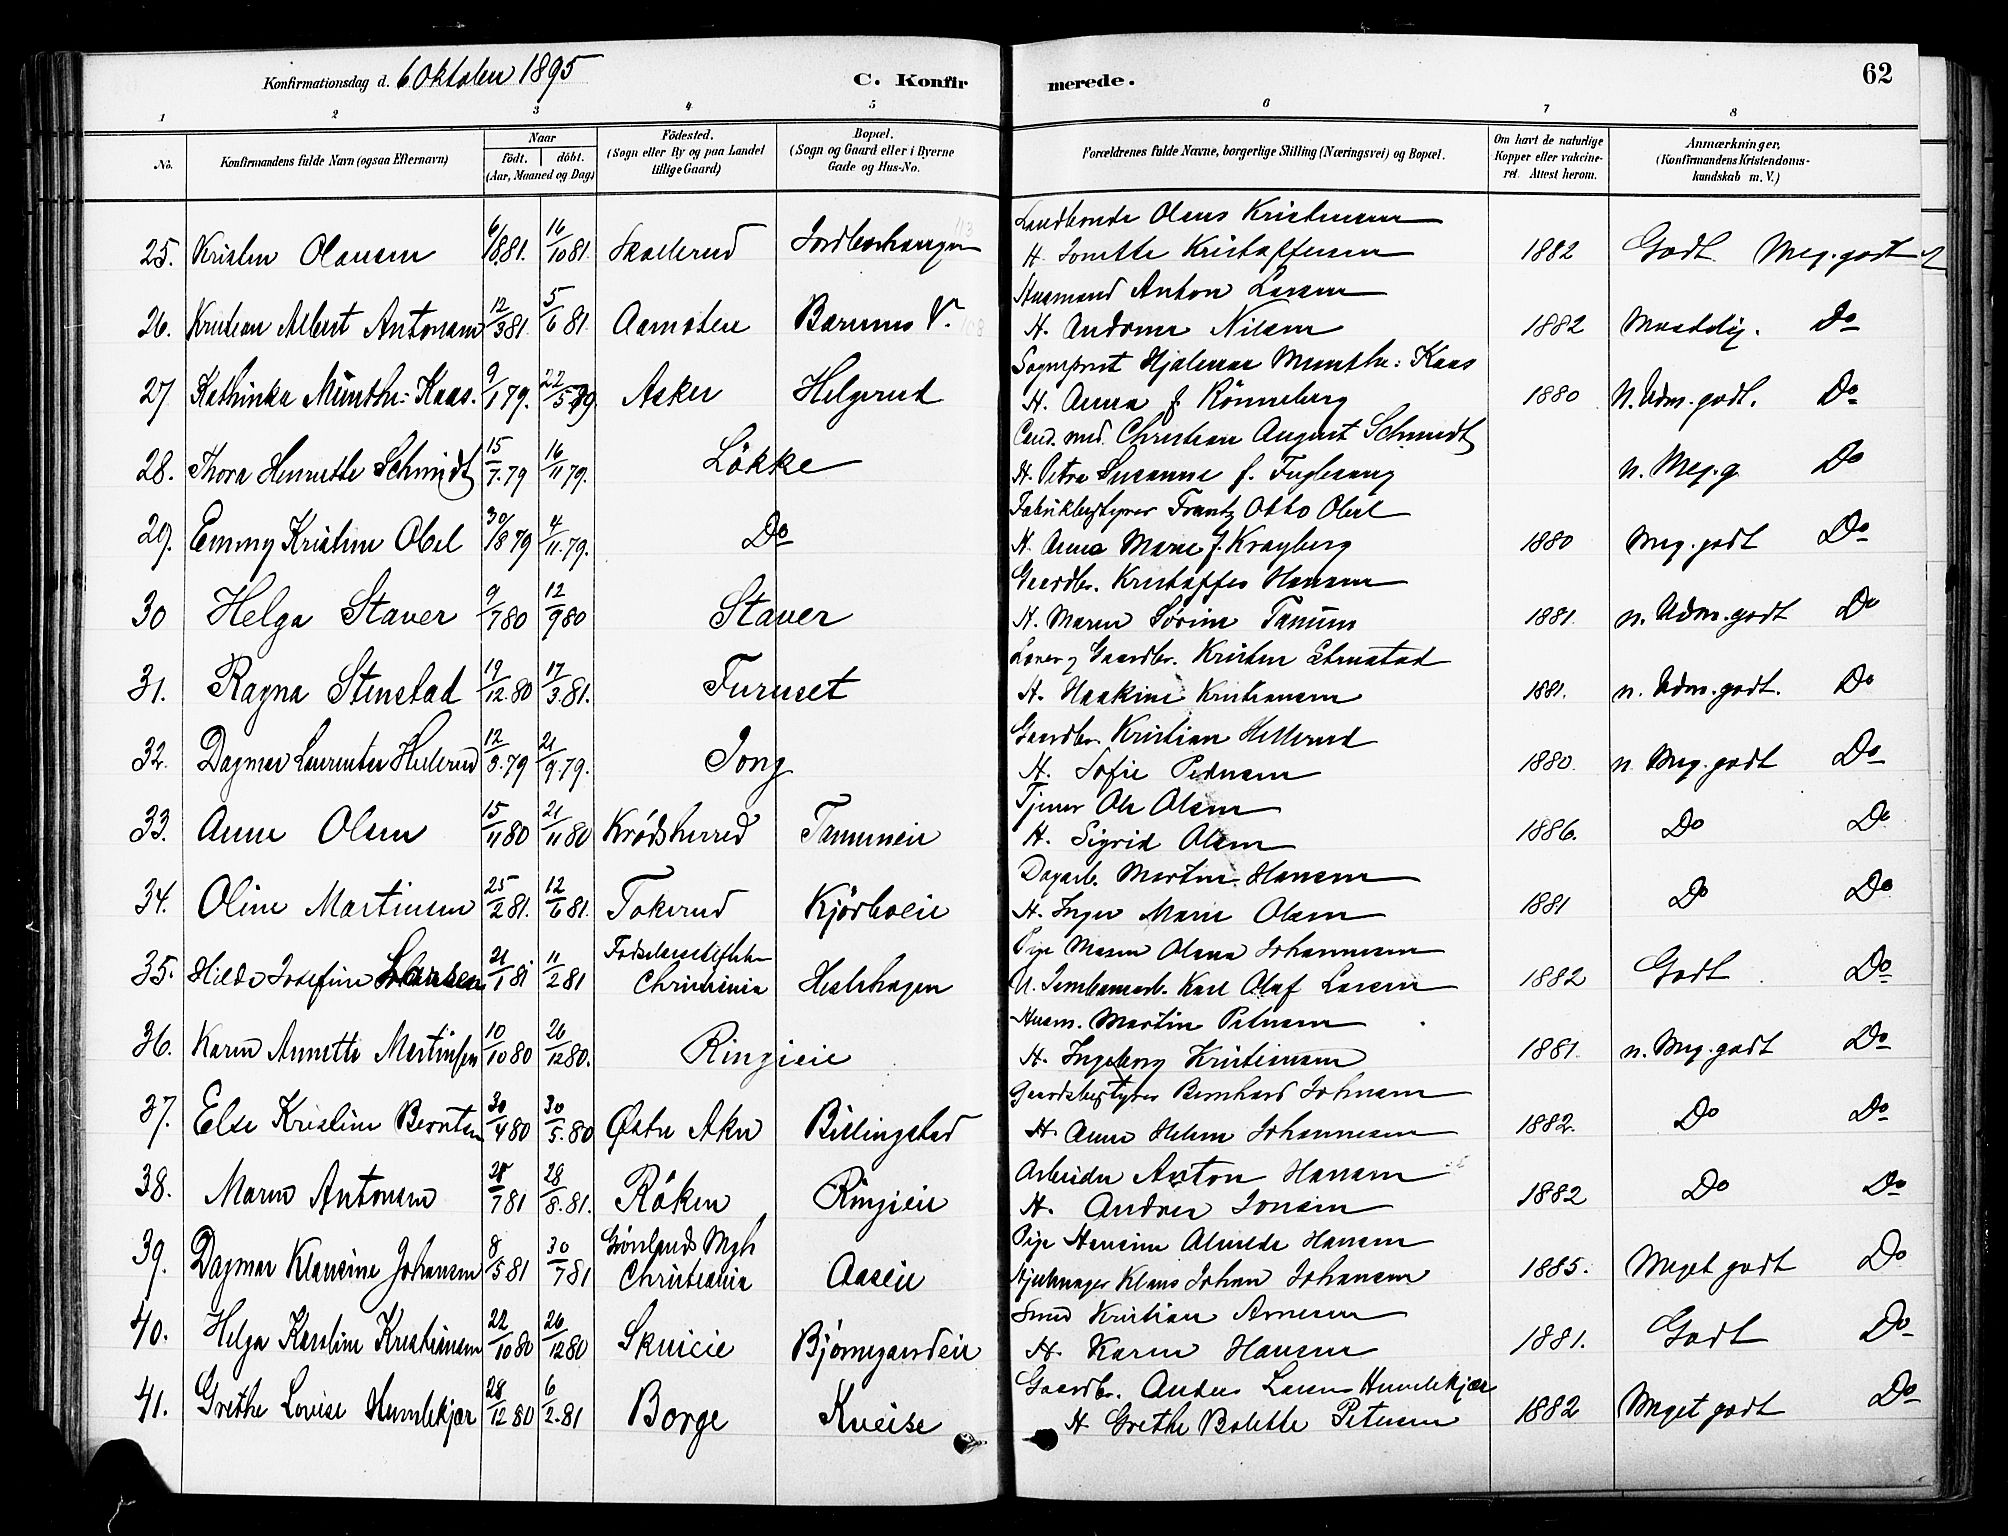 Konfirmationsdag d. 6 Oktober 1895
C. Konfir
merede.
62
1 2 3 4 5 6 7 8
No.
Konfirmandens fulde Navn (ogsaa Efternavn)
Naar
født. døbt.
(Aar, Maaned og Dag)
Födested.
(Sogn eller By og paa Landet
tillige Gaard)
Bopæl.
(Sogn og Gaard eller i Byerne
Gade og Hus-No.
Forældrenes fulde Navne, borgerlige Stilling (Næringsvei) og Bopæl.
Om havt de naturlige
Kopper eller vakcine-
ret. Attest herom.
Anmærkninger,
(Konfirmandens Kristendoms-
kundskab m. V.)
Landhandl Olaus Kristensen
25. Kristen Olausen 6/8.81. 16/10 81. Skallerud H. Jonette Kristoffersen 1882 Godt Meg. godt
Husmand Anton Larsen
26. Kristian Albert Antonsen 12/3 81. 5/6 81. Aamoten Bærums V. H. Andrine Nilsen 1882 Maadelig. Do
Sognprest Hjalmar Munthe-Kaas
27. Kathinka Munthe-Kaas. 9/1 79. 22/5 79 Asker Helgerud H. Anna f. Rönneberg 1880 N. Udm. godt. Do
Cand. med. Christian August Schmidt
28. Thora Henriette Schmidt 15/7.79 16/11 79. Lökke H. Petra Susanne f. Fuglesang n. Meg. g. Do
Fabrikbestyrer Frantz Otto Obel
29. Emmy Kristine Obel 30/8 79 4/11.79. Do H. Anna Marie f. Krayberg 1880 Meg. godt Do
Gaardbr. Kristoffer Hansen
30 Helga Staver 9/7 80 12/9 80 Staver H. Maren Sörine Tanum 1881. n. Udm. godt Do
Gaardbr. Kristen Stenstad
31. Ragna Stenstad 19/12.80 17/3 81. Furuset H. Haakine Kristiansen 1881. n. Udm. godt. Do
Gaardbr. Kristian Hellerud
32. Dagmar Laurentse Hellerud 12/3.79 21/9 79. Jong H. Sofie Pedersen 1880. n. Meg. godt Do
Tjener Ole Olsen
33. Anne Olsen 15/11 80 21/11 80 Krødsherred Tanumeie H. Sigrid Olsen 1886. Do Do
Dagarb. Martin Hansen
34. Oline Martinsen 25/2 81. 12/6 81. Tokerud Kjörboeie H. Inger Marie Olsen 1881 Do Do
Pige Maren Olena Johannesen
35. Hilda Josefine Larsen 21/1 81 11/2 81 Fødselsstiftelsen Christiania Heslehagen U. Jernbanearb. Karl Olaf Larsen 1882 Godt Do
Husm. Martin Petersen
36. Karen Annette Martinsen 10/10 80 26/12 80. Ringieie H. Ingeborg Kristiansen 1881. n. Meg. godt Do
Gaardsbestyrer Bernhard Johnsen
37. Else Kristine Berntsen 30/4 80 30/5.80 Østre Aker Billingstad H. Anne Helene Johannesen 1882. Do Do
Arbeider Anton Hansen
38. Maren Antonsen /7 81 28/8.81. Röken Ringieie H. Andrea Jonsen 1882 Do Do
Pige Hansine Alvilde Hansen
39. Dagmar Klausine Johansen 8/5 81 30/7 81 Grønlands Mgh Christiania Aaseie Hjulmager Klaus Johan Johansen 1885. Meget godt Do
Smed Kristian Arnesen
40. Helga Karoline Kristiansen 22/10 80 26/12 80 Skuieie Bjørnegaardeie H. Karen Hansen 1881. Godt Do
Gaardbr. Anders Larsen Humlekjær
41. Grethe Lovise Humlekjær 28/12 80 6/2.81 Borge Kveise H Grethe Bolette Petersen 1882 Meget godt Do